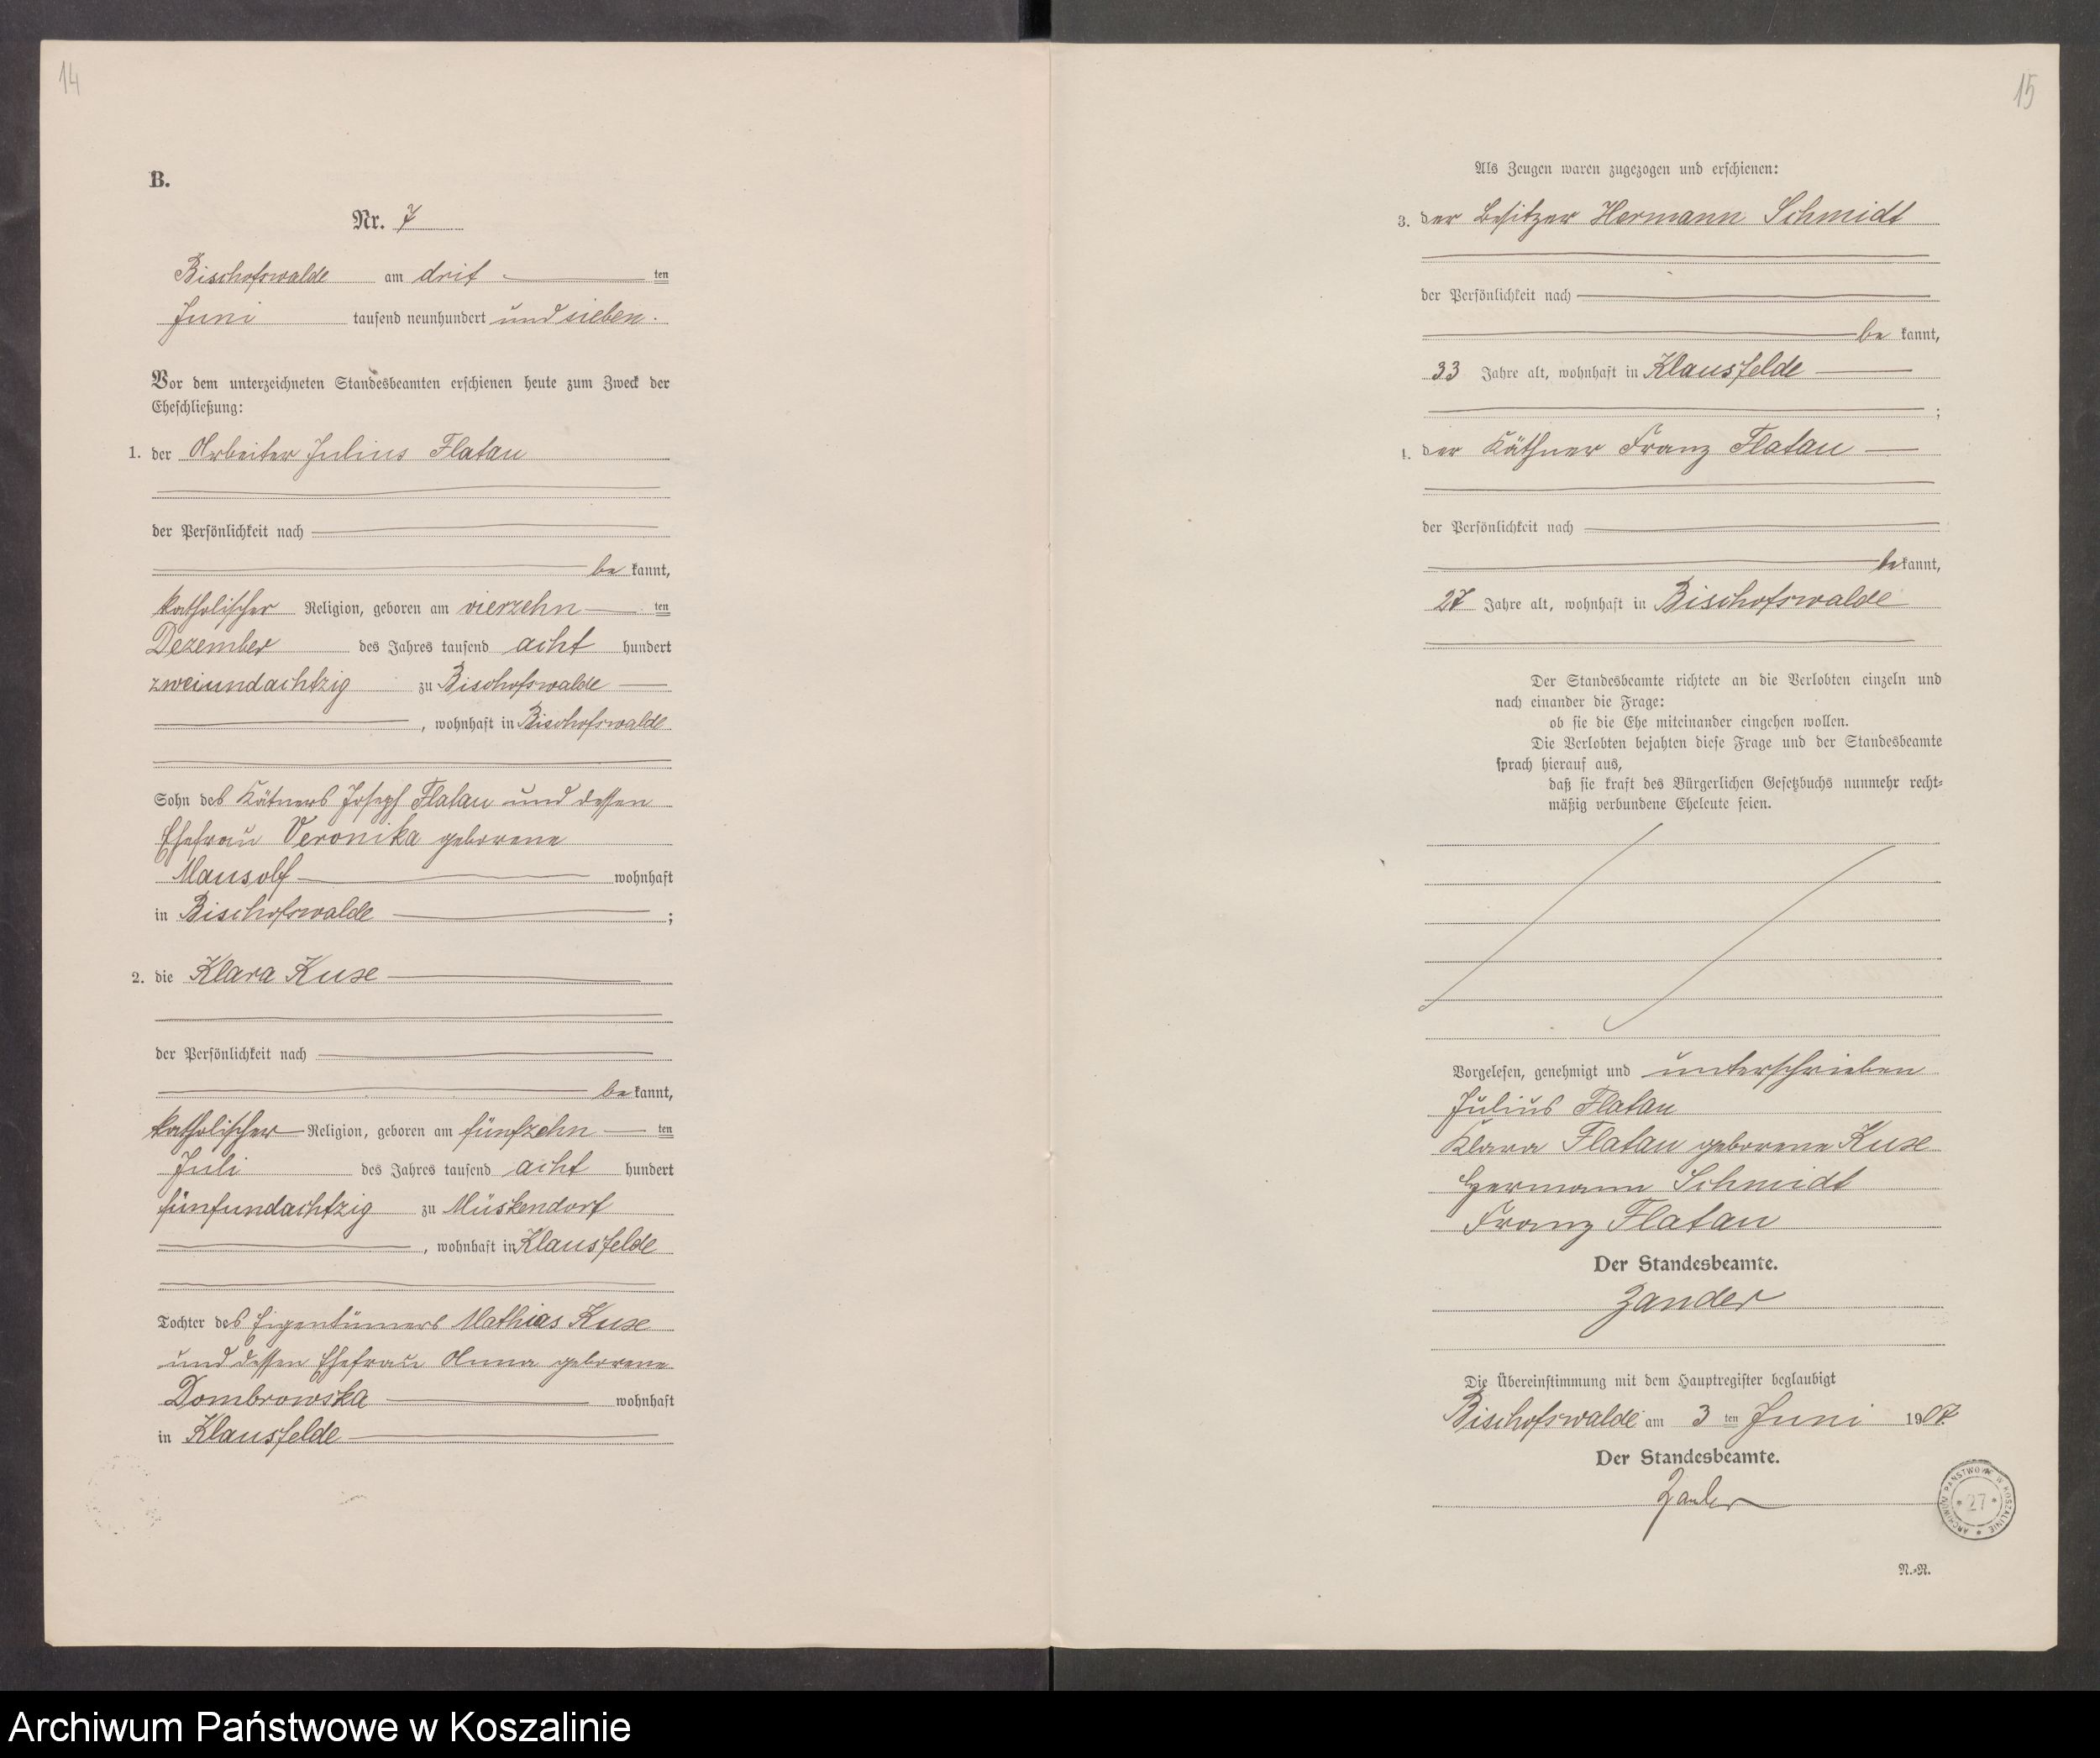 14
B.
Nr. 7
Bischofswalde am drit ten
Juni tausend neunhundert und sieben.
Vor dem unterzeichneten Standesbeamten erschienen heute zum Zweck der
Eheschließung:
1. der Arbeiter Julius Flatau
der Persönlichkeit nach
be kannt,
katholischer Religion, geboren am vierzehn ten
Dezember des Jahres tausend acht hundert
zweiundachtzig zu Bischofswalde
, wohnhaft in Bischofswalde
Sohn des Kätners Joseph Flatau und dessen
Ehefrau Veronika geborene
Mausolf wohnhaft
in Bischofswalde ;
2. die Klara Kuse
der Persönlichkeit nach
be kannt,
katholischer Religion, geboren am fünfzehn ten
Juli des Jahres tausend acht hundert
fünfundachtzig zu Müskendorf
, wohnhaft in Klausfelde
Tochter des Eigentümers Mathias Kuse
und dessen Ehefrau Anna geborene
Dombrowska wohnhaft
in Klausfelde
15
Als Zeugen waren zugezogen und erschienen:
3. der Besitzer Hermann Schmidt
der Persönlichkeit nach
be kannt,
33 Jahre alt, wohnhaft in Klausfelde
;
4. der Käthner Franz Flatau
der Persönlichkeit nach
be kannt,
27 Jahre alt, wohnhaft in Bischofswalde
Der Standesbeamte richtete an die Verlobten einzeln und
nach einander die Frage:
ob sie die Ehe miteinander eingehen wollen.
Die Verlobten bejahten diese Frage und der Standesbeamte
sprach hierauf aus,
daß sie kraft des Bürgerlichen Gesetzbuchs nunmehr recht-
mäßig verbundene Eheleute seien.
Vorgelesen, genehmigt und unterschrieben
Julius Flatau
Klara Flatau geborene Kuse
Hermann Schmidt
Franz Flatau
Der Standesbeamte.
Zander
Die Übereinstimmung mit dem Hauptregister beglaubigt
Bischofswalde am 3 ten Juni 1907.
Der Standesbeamte.
Zander
ARCHIWUM PAŃSTWOWE W KOSZALINIE
* 27 *
N.-N.
Archiwum Państwowe w Koszalinie